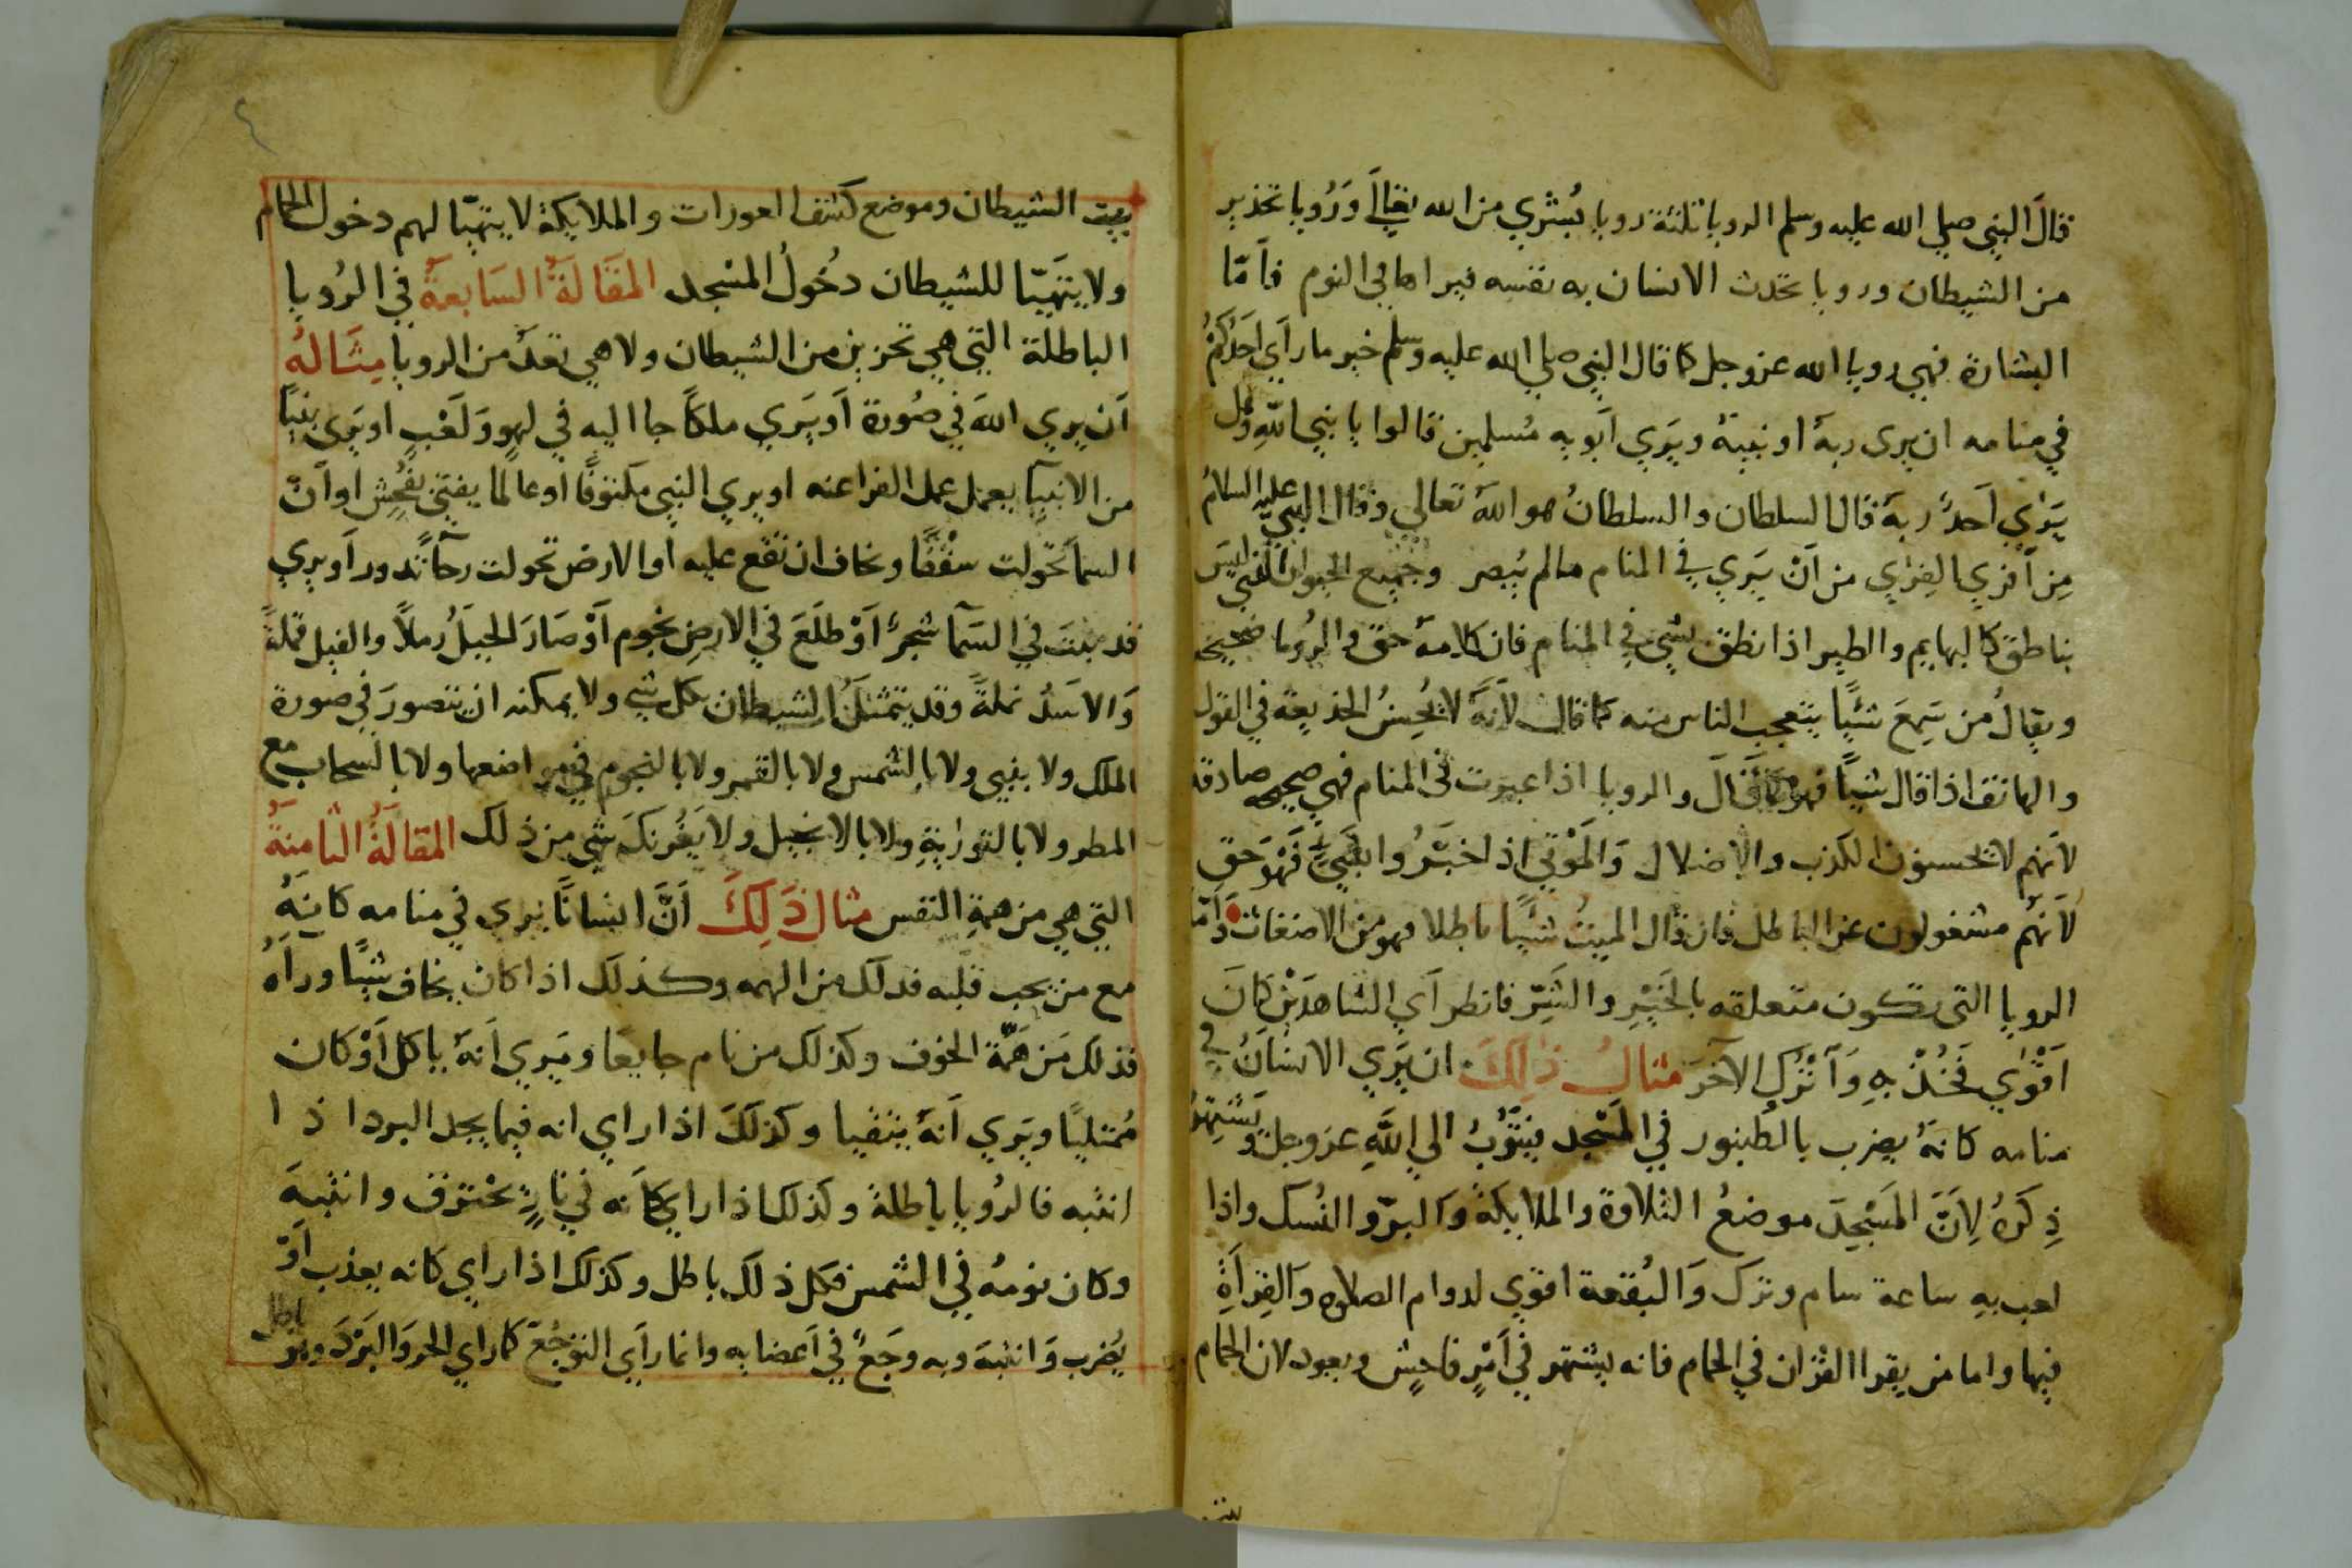 قال النبي صلي الله عليه وسلم الرويا ثلثة رويا بُشري من الله تعالي وَرُويا تحذير
من الشيطان ورويا تحدث الانسان به نفسه فيراها في النوم فاَمّا
البشارة فهي رويا الله عز وجل كما قال النبي صلي الله عليه وسلم خير ما راَي اَحَدُكُمْ
في منامه ان يرى ربهُ او نبيهُ ويَري اَبويه مُسلمين قالوا يا نبي اللّهِ وهل
يَرٰي اَحدٌ ربهُ قال السلطان والسلطانُ هو اللهُ تعالي وقال النبي عليه السلامُ
مِن اَفري الفِرٰي من اَنْ يَري في المنام مالم يُبصر وجَميع الحيوان التي ليسَ
بناطق كالبهايم والطير اذا نطق بشي في المنام فان كلامهُ حق والرُويا صحيحه
ويقالُ من سَمِعَ شَيًا يتعجب الناس منه كما قال لاَنهُ لا يُحسِنُ الخديعة في القول
والهاتف اذا قال شيًا فهو كما قالَ والرويا اذا عبرت في المنام فهي صحيحه صادقه
لاَنهم لا يحسنون الكذب والاِضلال وَالمَوْتي اذا خبَّرُوا بشي فَهْوَ حَق
لاَنهُم مشغولون عن الباطل فان قال الميتُ شيًا باطلا فهو من الاضغاث وَاَمّا
الرويا التي تكون متعلقه بالخَيرِ والشَرّ فانظر اَي الشاهدَيْن كانَ
اَقْوٰي فَخُذْ بِهِ وَاَتْرُكِ الآخَرَ مثالُ ذٰلِكَ ان يَري الانسانُ في
منامه كانهُ يضرب بالطنبور في المَسْجد فيَتُوْبُ الي اللَّهِ عز وجل وَيَشتهرُ
ذِكرُهُ لِاَنَّ المَسْجِدَ موضعُ التلاوة والملايكة وَالبرّ والنُسك واذا
لعب بهِ ساعة سام وترك وَالبُقعة اقوي لدوام الصلاه وَالقِرآءَةِ
فيها واما من يقرا القرٰان في الحمام فانه يشتهر في اَمْرٍ فاحِشٍ ويعود لان الحمام
بيت
بيت الشيطان وموضع كشف العورات والملايكة لا يتهيّا لهم دخول الحمام
ولا يتَهيّا للشيطان دخُولُ المسْجد المقَالَةُ السَابعةُ في الرُويا
الباطلة التي هي تحزين من الشيطان ولا هي تعدُ من الرويا مِثَالهُ
اَن يري اللهَ في صُورة اَو يَري ملكاً جا اليه في لهوٍ وَلَعْبٍ او يَري نبيًا
من الانبيا يعمل عمل الفراعنه او يري النبي مكتوفًا اَو عالمًا يفتي بفُحشٍ او اَنّ
السماَ تحولت سقْفًا وخاف ان تقع عليه اَو الارض تحولت رحاً تدور اَو يري
قد نبتَ في السَمآ شجرٌ اَوْ طلَعَ في الارضِ نجوم اَوْ صَارَ الجبَلُ رملاً والفيل قملةً
وَالاسَدُ نملةً وقد يتمثلُ الشيطان بكل شي ولا يمكنه ان يتصورَ في صورة
الملك ولا بنبي ولا بالشمس ولا بالقمر ولا بالنجوم في مواضعها ولا بالسحاب مع
المطر ولا بالتورٰيةِ ولا بالانجيل ولا يَغُرنكَ شي من ذلك المقَالةُ الثامنَةُ
التي هي من همةِ النفس مثال ذَلِكَ اَنَّ انسانًا يري في منامه كانهُ
مع من يحب قلبه فدلك من الهمه وكذلك اذا كان يخاف شيًا ورآَهُ
فذلك من همَّة الخوف وكذلك من نام جايعًا ويَري اَنهُ ياكل اَوْ كان
مُمتليًا ويَري اَنهُ يتقيا وكذلكَ اذا راي انه فيما يجد البرد اذا
انتبه فالرُويا باطلة وكذلك اذا راي كاَنه في نارٍ يحْترق وانتبهَ
وكان نومُهُ في الشمس فكل ذلك باطل وكذلك اذا راي كانه يعذب اَوْ
يُضرب وَانتبهَ وبه وجَعٌ في اَعضايه وانما راَي التوجُعَ كما راَي الحر وَالبَرْدَ وهو باطل